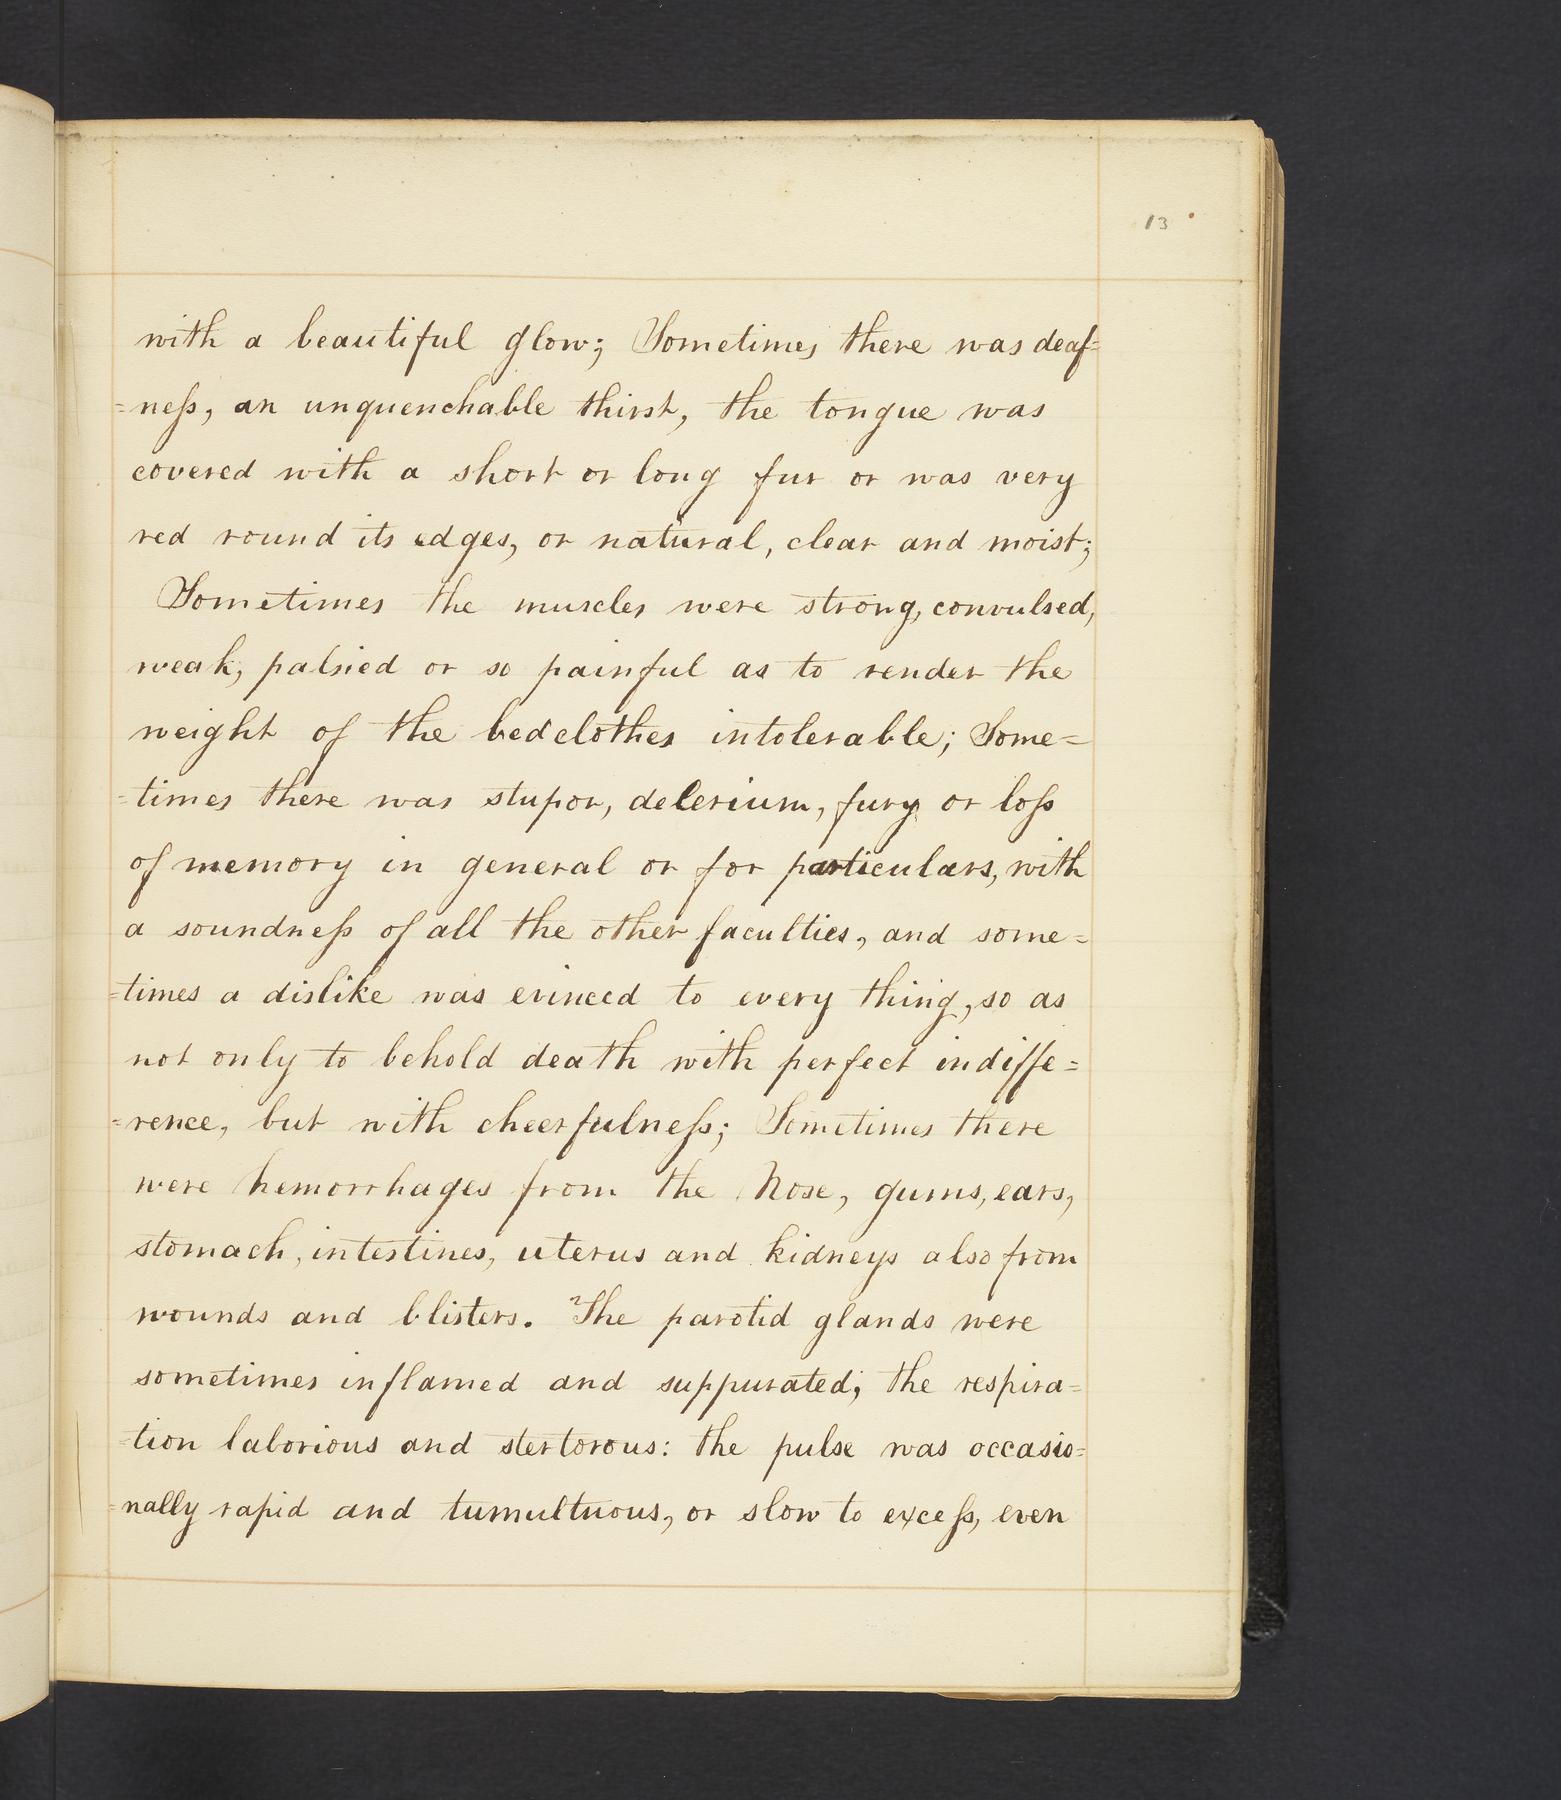 13
with a beautiful glow; Sometimes there was deaf=
=neſs, an unquenchable thirst, the tongue was
covered with a short or long fur or was very
red round its edges, or natural, clear and moist;
Sometimes the muscles were strong, convulsed,
weak, palsied or so painful as to render the
weight of the bedclothes intolerable; Some=
=times there was stupor, delerium, fury or loſs
of memory in general or for particulars, with
a soundneſs of all the other faculties, and some=
=times a dislike was evinced to every thing, so as
not only to behold death with perfect indiffe=
=rence, but with cheerfulneſs; Sometimes there
were hemorrhages from the Nose, gums, ears,
stomach, intestines, uterus and kidneys also from
wounds and blisters. The parotid glands were
sometimes inflamed and suppurated; the respira=
=tion laborious and stertorous: the pulse was occasio=
=nally rapid and tumultuous, or slow to exceſs, even